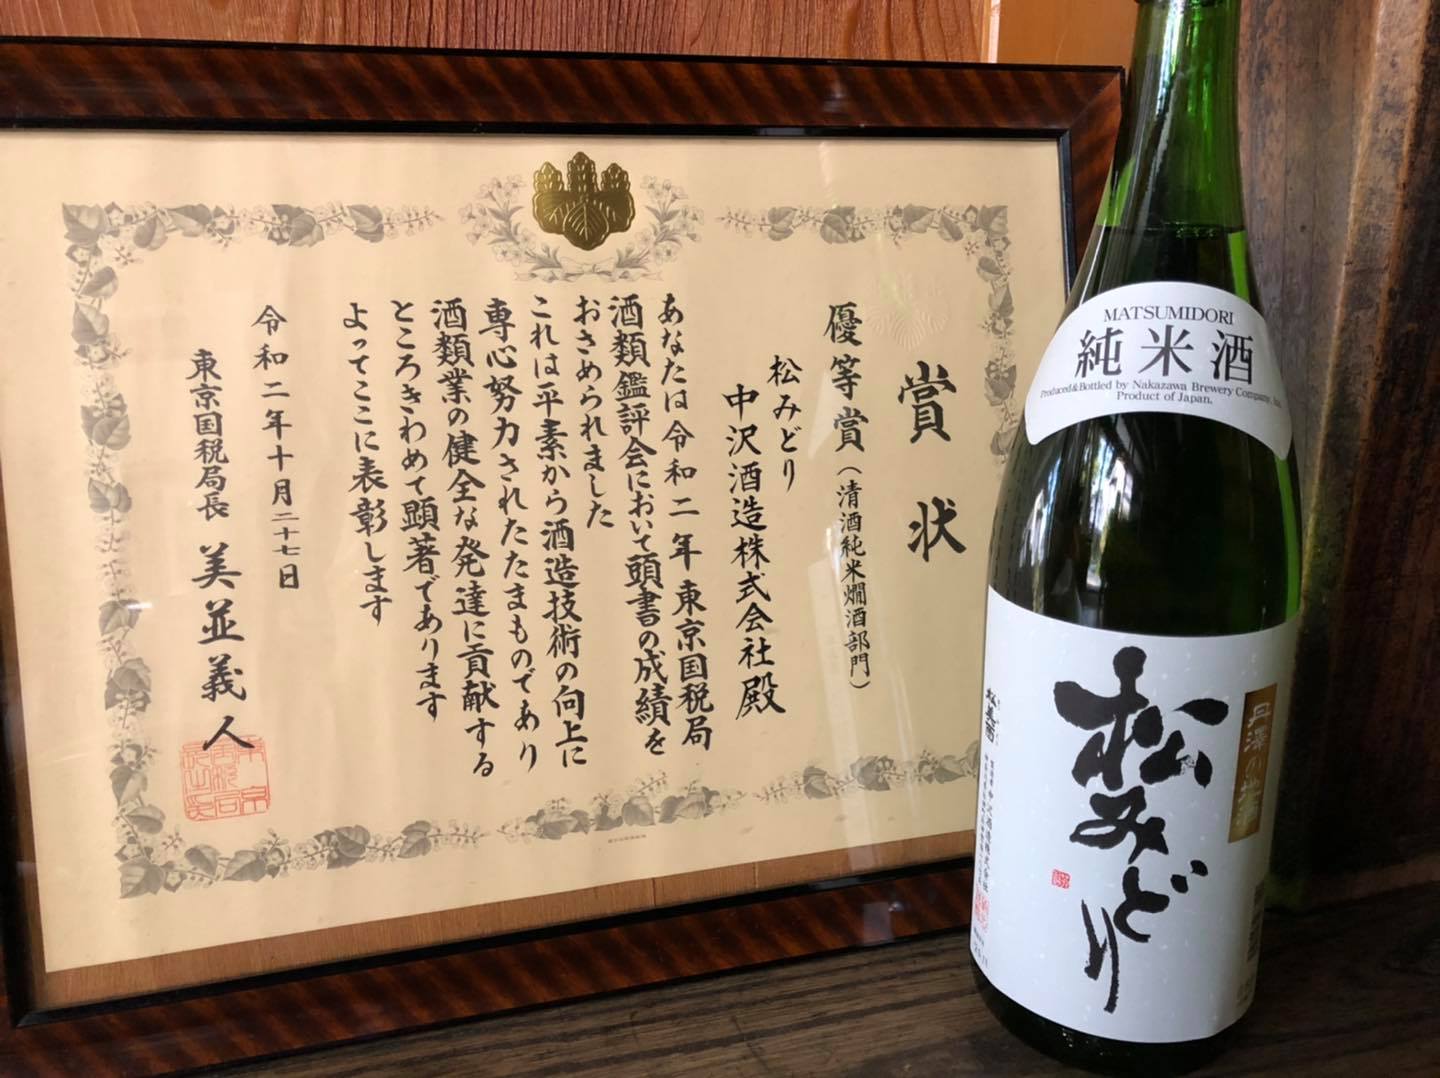 賞状
優等賞(清酒純米燗酒部門)
松みどり
中沢酒造株式会社殿
あなたは令和二年東京国税局
酒類鑑評会において頭書の成績を
おさめられました
これは平素から酒造技術の向上に
専心努力されたたまものであり
酒類業の健全な発達に貢献する
ところきわめて顕著であります
よってここに表彰します
令和二年十月二十七日
東京国税局長 美並義人
MATSUMIDORI
純米酒
Produced & Bottled by Nakazawa Brewery Company,
Product of Japan.
松みどり
松美酉
中沢酒造株式会社